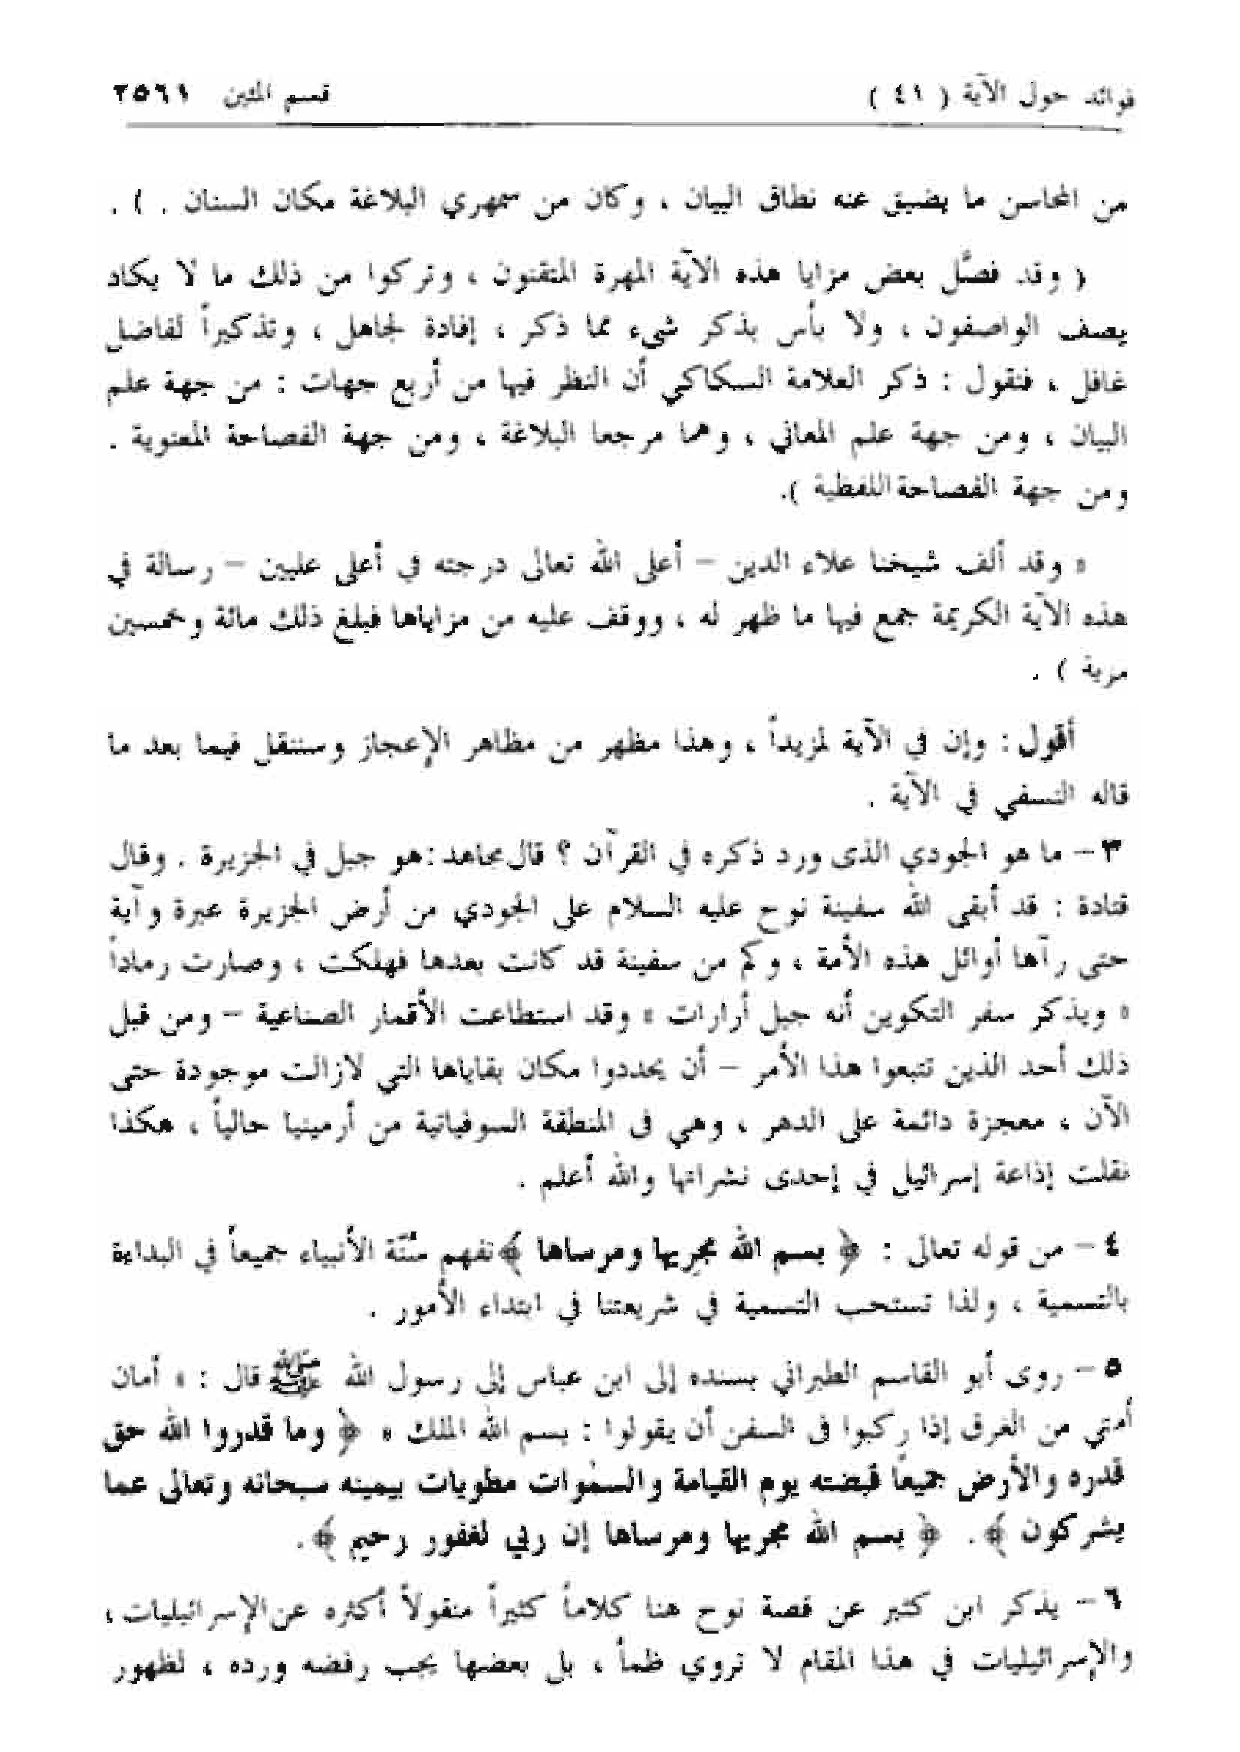 فوائد حول الآية ( ٤١ )
قسم المئين ٢٥٦١
من المحاسن ما يضيق عنه نطاق البيان ، وكان من سمهري البلاغة مكان السنان . ) .
( وقد فصَّل بعض مزايا هذه الآية المهرة المتقنون ، وتركوا من ذلك ما لا يكاد
يصف الواصفون ، ولا بأس بذكر شيء مما ذكر ، إفادة لجاهل ، وتذكيراً لفاضل
غافل ، فنقول : ذكر العلامة السكاكي أن النظر فيها من أربع جهات : من جهة علم
البيان ، ومن جهة علم المعاني ، وهما مرجعا البلاغة ، ومن جهة الفصاحة المعنوية .
ومن جهة الفصاحة اللفظية ).
« وقد ألف شيخنا علاء الدين – أعلى الله تعالى درجته في أعلى عليين – رسالة في
هذه الآية الكريمة جمع فيها ما ظهر له ، ووقف عليه من مزاياها فبلغ ذلك مائة وخمسين
مزية ) .
أقول : وإن في الآية لمزيداً ، وهذا مظهر من مظاهر الإعجاز وسننقل فيما بعد ما
قاله النسفي في الآية .
٣ – ما هو الجودي الذى ورد ذكره في القرآن ؟ قال مجاهد : هو جبل في الجزيرة . وقال
قتادة : قد أبقى الله سفينة نوح عليه السلام على الجودي من أرض الجزيرة عبرة وآية
حتى رآها أوائل هذه الأمة ، وكم من سفينة قد كانت بعدها فهلكت ، وصارت رماداً
« ويذكر سفر التكوين أنه جبل أرارات » وقد استطاعت الأقمار الصناعية – ومن قبل
ذلك أحد الذين تتبعوا هذا الأمر – أن يحددوا مكان بقاياها التي لازالت موجودة حتى
الآن ، معجزة دائمة على الدهر ، وهي فى المنطقة السوفياتية من أرمينيا حالياً ، هكذا
نقلت إذاعة إسرائيل في إحدى نشراتها والله أعلم .
٤ – من قوله تعالى : ﴿ بسم الله مجريها ومرساها ﴾ نفهم سُنّة الأنبياء جميعاً في البداءة
بالتسمية ، ولذا تستحب التسمية في شريعتنا في ابتداء الأمور .
٥ – روى أبو القاسم الطبراني بسنده إلى ابن عباس إلى رسول الله ﷺ قال : « أمان
أمتي من الغرق إذا ركبوا فى السفن أن يقولوا : بسم الله الملك » ﴿ وما قدروا الله حق
قدره والأرض جميعاً قبضته يوم القيامة والسمٰوات مطويات بيمينه سبحانه وتعالى عما
يشركون ﴾ . ﴿ بسم الله مجريها ومرساها إن ربي لغفور رحيم ﴾.
٦ – يذكر ابن كثير عن قصة نوح هنا كلاماً كثيراً منقولاً أكثره عن الإسرائيليات ،
والإسرائيليات في هذا المقام لا تروي ظمأ ، بل بعضها يجب رفضه ورده ، لظهور